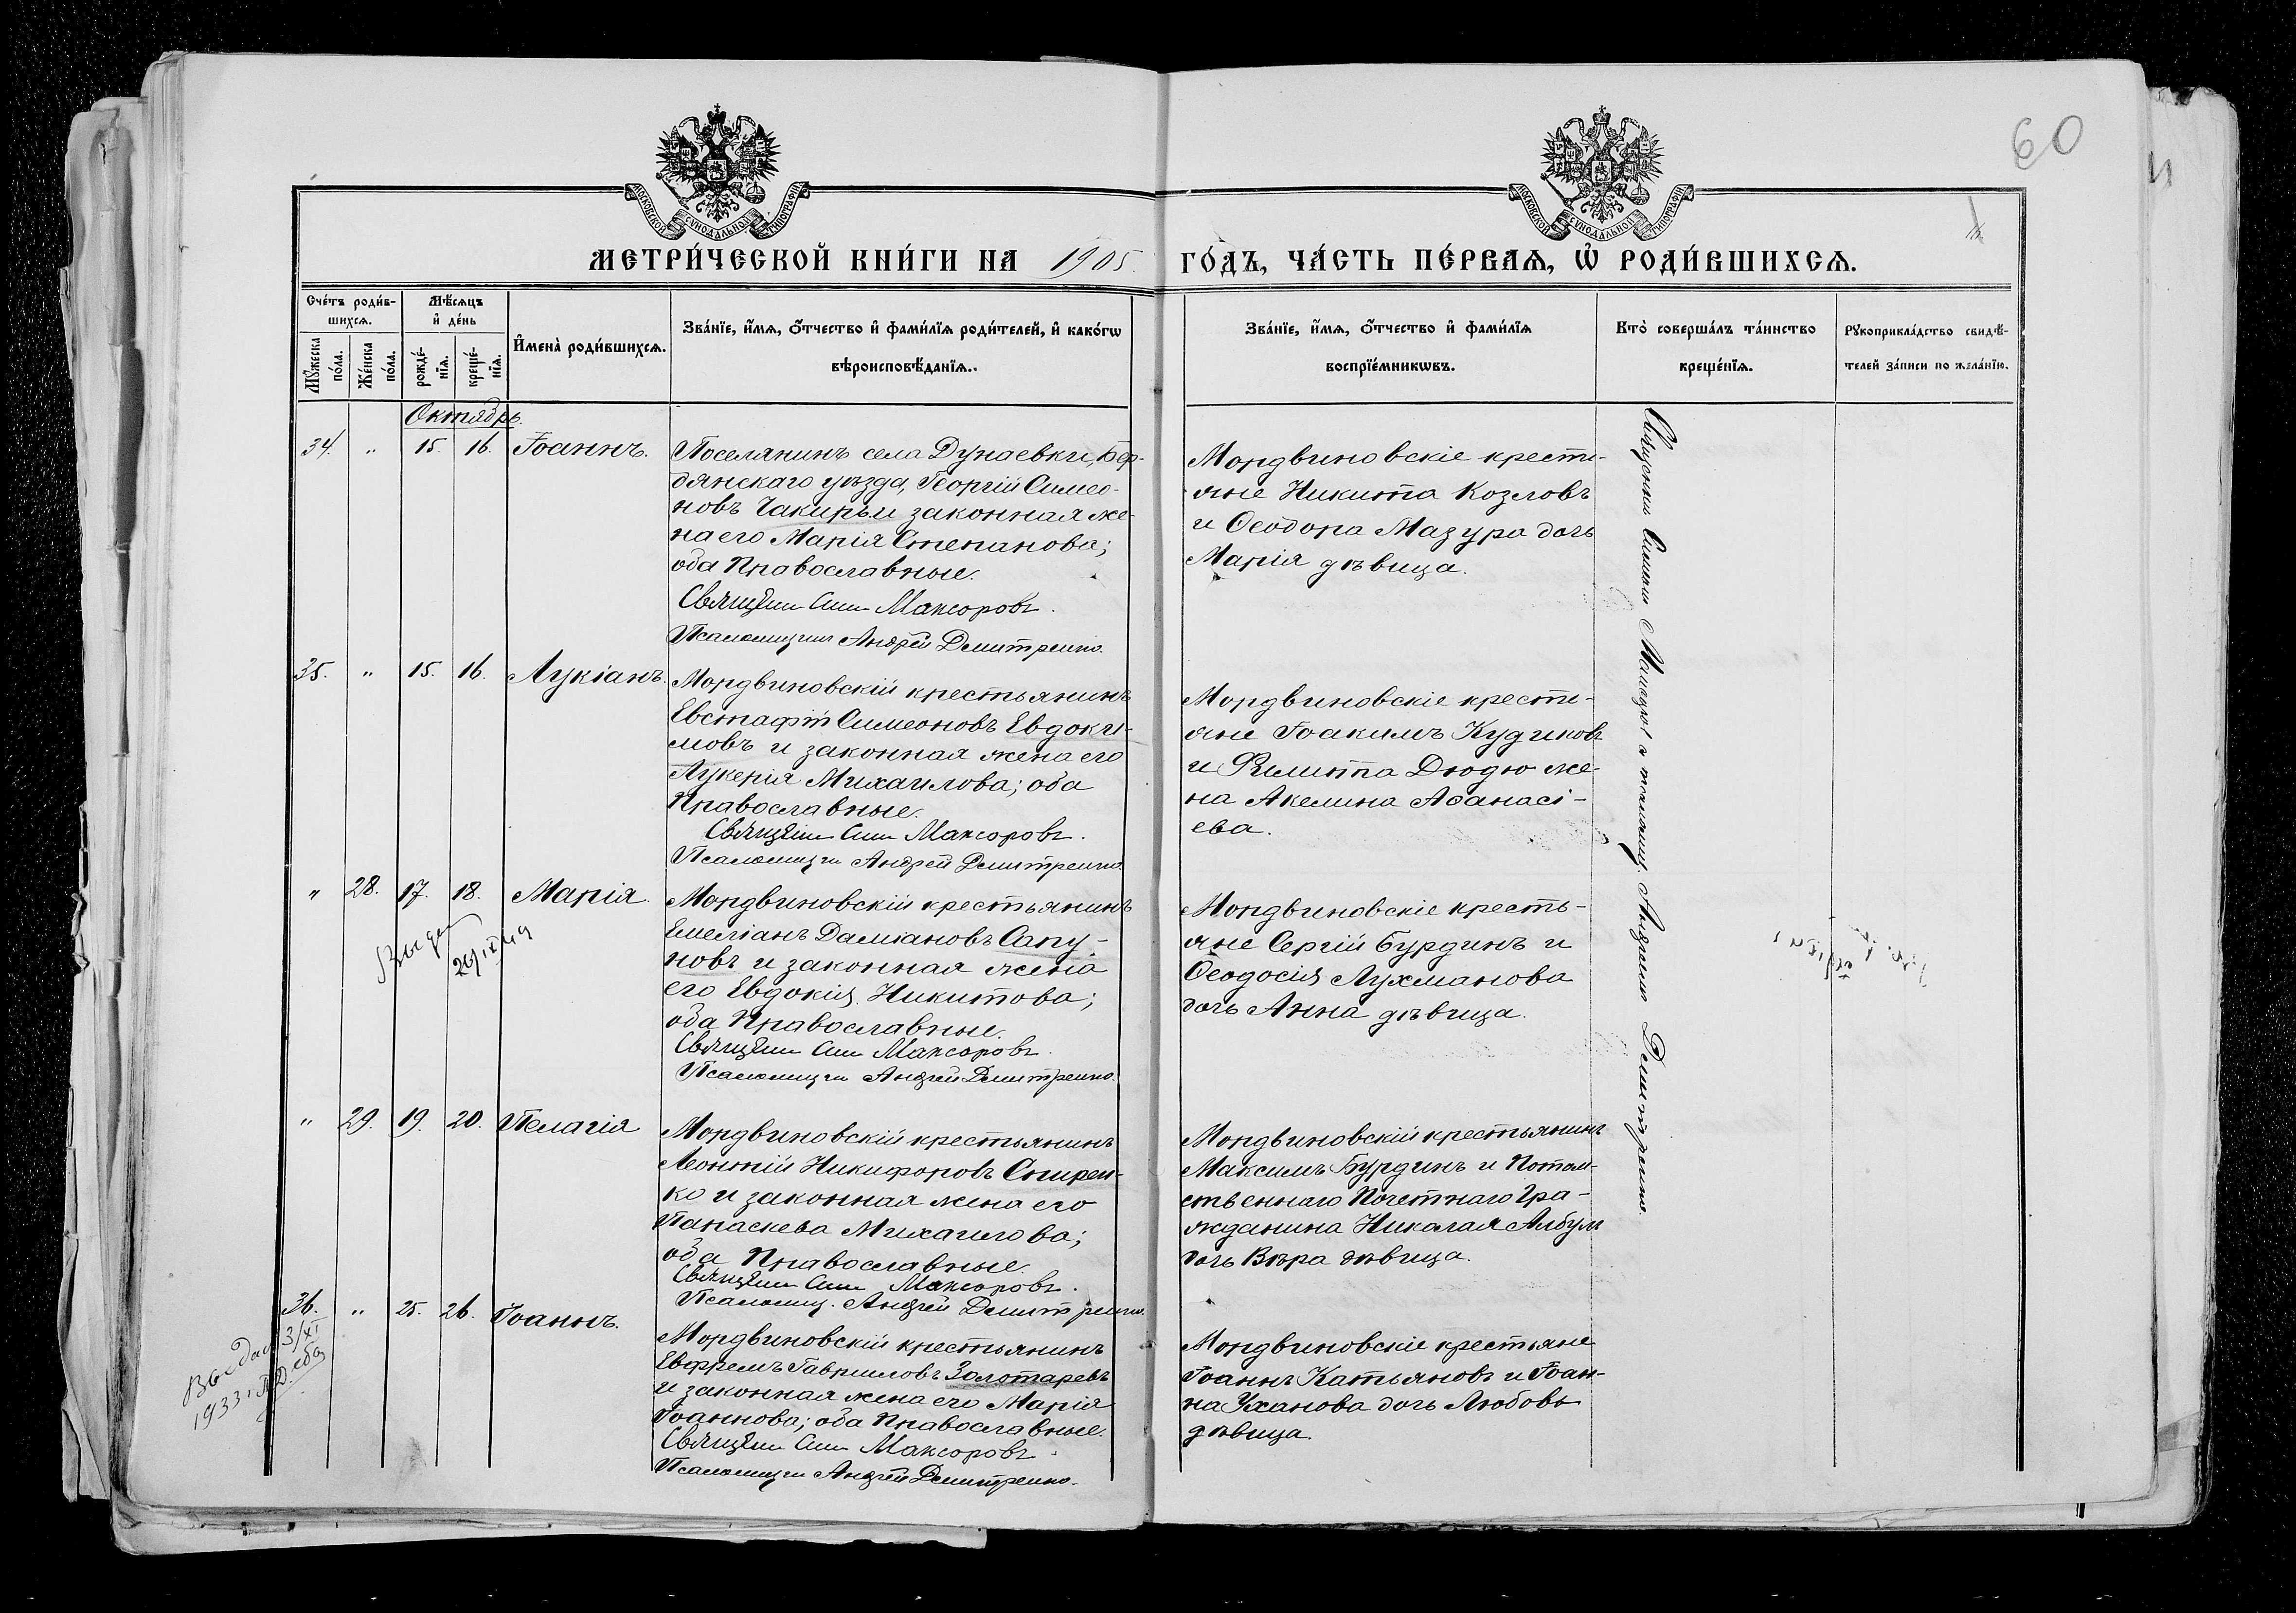 60
МОСКОВСКОЙ СѴНОДАЛЬНОЙ ТИПОГРАФІИ
МОСКОВСКОЙ СѴНОДАЛЬНОЙ ТИПОГРАФІИ
МЕТРИ́ЧЕСКОЙ КНИ́ГИ НА 1905 ГО́ДЪ, ЧА́СТЬ ПЕ́РВАѦ, Ѡ҆ РОДИ́ВШИХСѦ.
Сче́тъ роди́в-
шихсѧ.
Мꙋ́жеска по́ла.
Же́нска по́ла.
Мѣ́сѧцъ
и҆ де́нь
рожде́-
нїѧ.
креще́-
нїѧ.
И҆мена̀ роди́вшихсѧ.
Зва́нїе, и҆́мѧ, ѻ҆́тчество и҆ фами́лїѧ роди́телей, и҆ како́гѡ
вѣроисповѣ́данїѧ.
Зва́нїе, и҆́мѧ, ѻ҆́тчество и҆ фами́лїѧ
воспрїе́мникѡвъ.
Кто̀ соверша́лъ та́инство
креще́нїѧ.
Рꙋкоприкла́дство свидѣ́-
телей за́писи по жела́нїю.
Октябрь.
34. " 15. 16. Іоаннъ.
Поселянинъ села Дунаевки, Бер-
дянскаго уѣзда, Георгій Симео-
новъ Чакиръ и законная же-
на его Марія Степанова;
оба Православные.
Священн Сим Максоровъ.
Псаломщикъ Андрей Демитренко.
Мордвиновскіе кресть-
яне Никита Козловъ
и Ѳеодора Мазура дочь
Марія дѣвица.
35. " 15. 16. Лукіанъ.
Мордвиновскій крестьянинъ
Евстафій Симеоновъ Евдоки-
мовъ и законная жена его
Лукерія Михаилова; оба
Православные.
Священн Сим Максоровъ.
Псаломщикъ Андрей Демитренко.
Мордвиновскіе кресть-
яне Іоакимъ Кудиновъ
и Филиппа Дюдю же-
на Акелина Аѳанасі-
ева.
" 28. 17. 18. Марія.
Мордвиновскій крестьянинъ
Емеліанъ Даміановъ Сапу-
новъ и законная жена
его Евдокія Никитова;
оба Православные.
Священн Сим Максоровъ.
Псаломщикъ Андрей Демитренко.
Мордвиновскіе кресть-
яне Сергій Бурдинъ и
Ѳеодосія Лухманова
дочь Анна дѣвица.
" 29. 19. 20. Пелагія
Мордвиновскій крестьянинъ
Леонтій Никифоровъ Спирен-
ко и законная жена его
Параскева Михаилова;
оба Православные.
Священн Сим Максоровъ.
Псаломщ. Андрей Демитренко.
Мордвиновскій крестьянинъ
Максимъ Бурдинъ и Потом-
ственнаго Почетнаго Гра-
жданина Николая Албулъ
дочь Вѣра дѣвица.
36. " 25. 26. Іоаннъ.
Мордвиновскій крестьянинъ
Ефремъ Гавриловъ Золотаревъ
и законная жена его Марія
Іоаннова; оба Православные.
Священн Сим Максоровъ
Псаломщикъ Андрей Демитренко.
Мордвиновскіе крестьяне
Іоаннъ Катьяновъ и Іоан-
на Уханова дочь Любовь
дѣвица.
Выдал 3/XI
1933